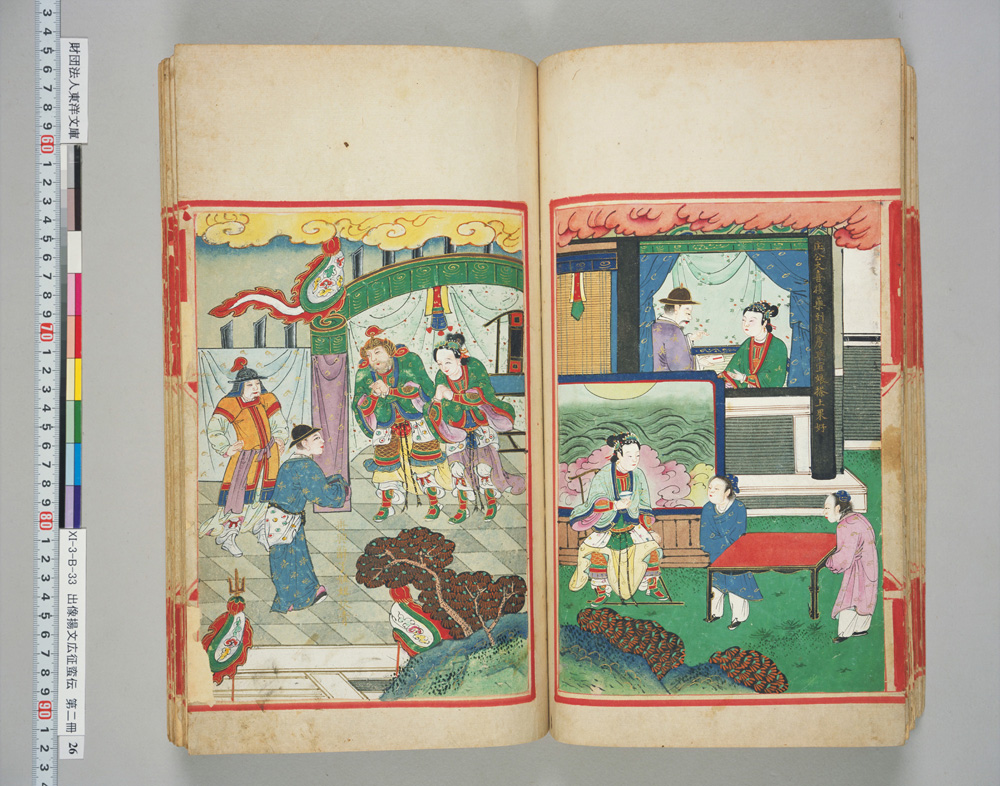 3 4 5 6 7 8 9 60 1 2 3 4 5 6 7 8 9 70 1 2 3 4 5 6 7 8 9 80 1 2 3 4 5 6 7 8 9 90 1 2 3 4
財団法人東洋文庫
XI-3-B-33 出像揚文広征蛮伝 第二冊 26
公大喜接藥到後房宜娘搽上果好